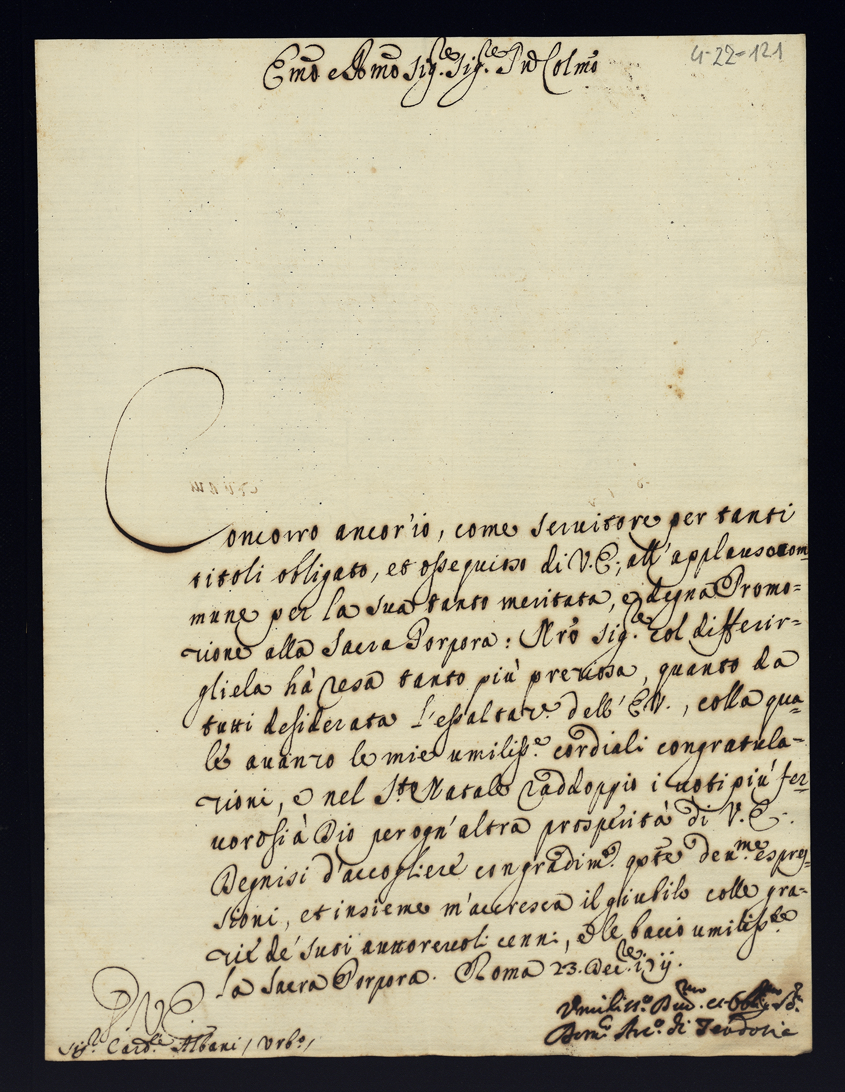 4-22-121
Emo e Rmo Sig.re Sig.re Pne Colmo
Concorro ancor'io, come seruitore per tanti
titoli obligato, et ossequioso di V.E., all'applauso com=
mune per la sua tanto meritata, e degna Promo=
zione alla Sacra Porpora: Nro Sig.re col differir=
gliela hà resa tanto più preziosa, quanto da
tutti desiderata l'essaltaz.e dell'E.V., colla qua=
le auanzo le mie umiliss.e cordiali congratula=
zioni, e nel S.to Natale raddoppio i uoti più fer=
uorosi à Dio per ogn'altra prosperità di V.E.
Degnisi d'accogliere con gradim.o qste deu.me espres=
sioni, et insieme m'accresca il giubilo colle gra=
zie de' suoi auttoreuoli cenni, e le bacio umiliss.te
la Sacra Porpora. Roma 23. Dec.re
Sig.r Card.le Albani / Urb.o /
Vmiliss.o Deu.mo et Obl.mo
Arc.o di Teodosia